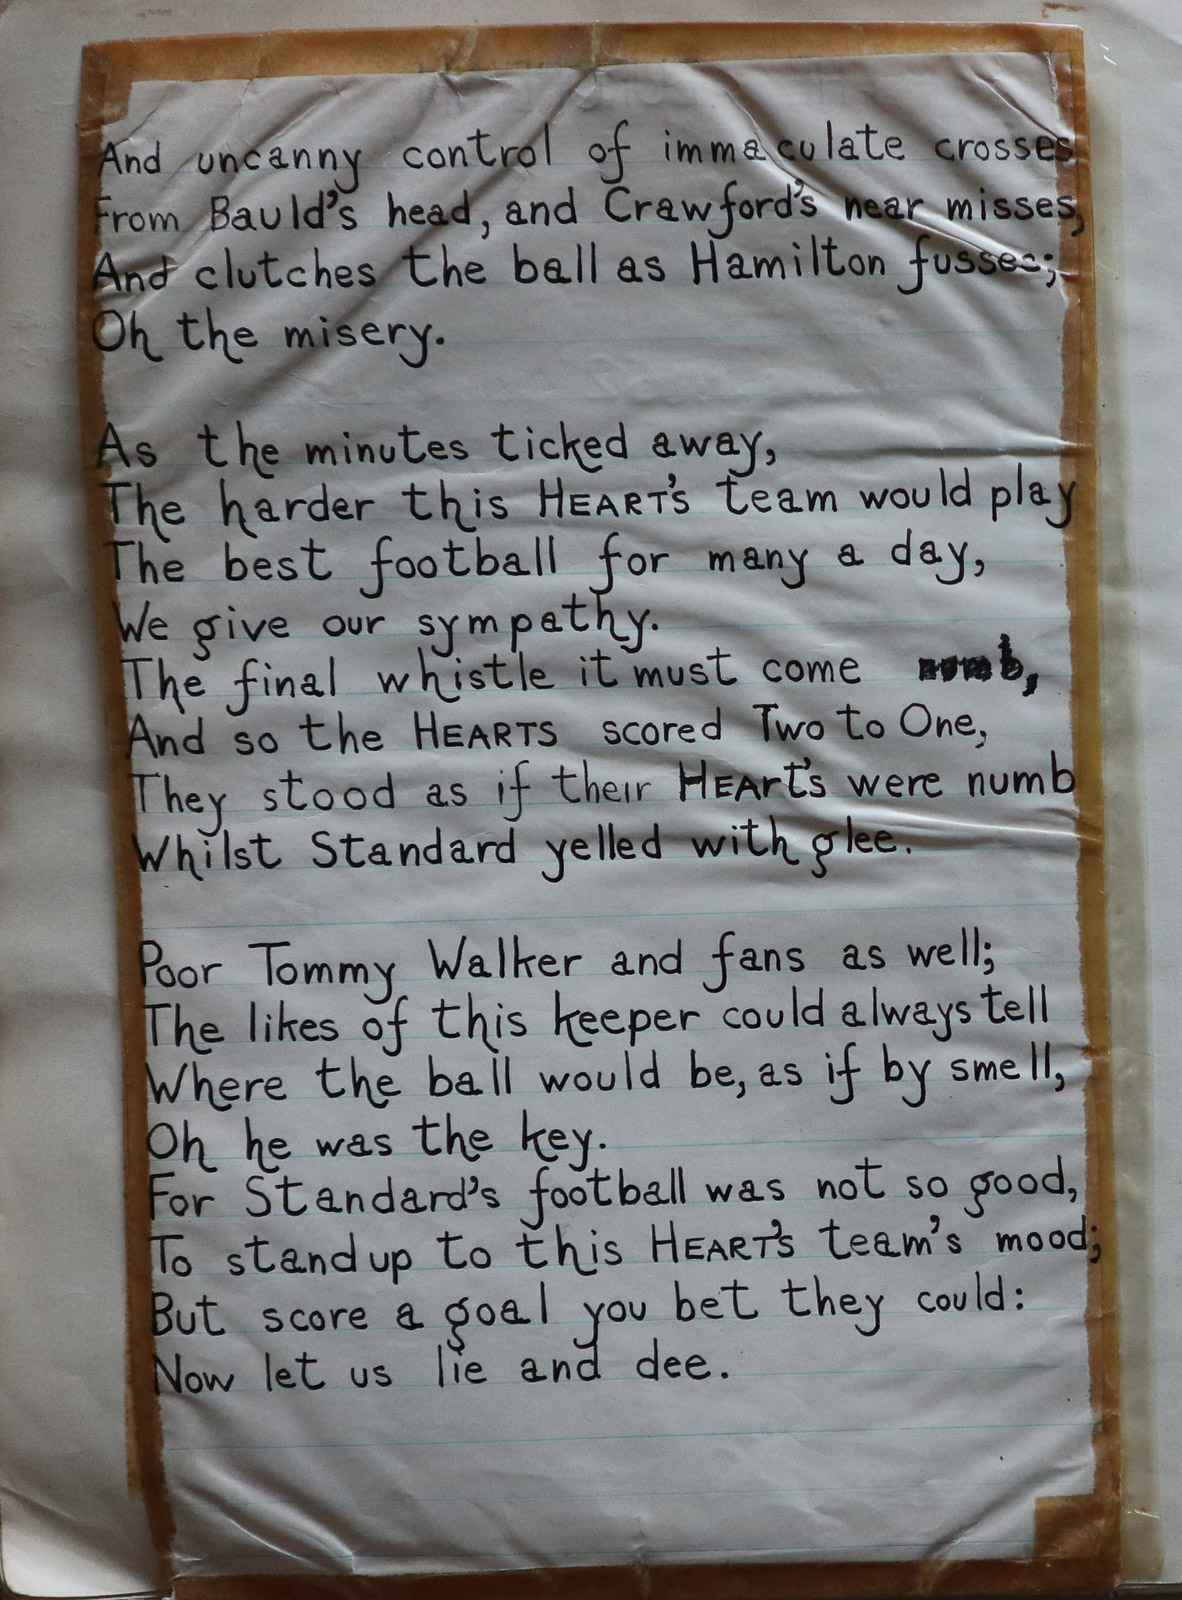 And uncanny control of immaculate crosses
From Bauld's head, and Crawford's near misses,
And clutches the ball as Hamilton fusses;
Oh the misery.
As the minutes ticked away,
The harder this HEART'S team would play
The best football for many a day,
We give our sympathy.
The final whistle it must come
And so the HEARTS scored Two to One,
They stood as if their HEArt's were numb
Whilst Standard yelled with glee.
Poor Tommy Walker and fans as well;
The likes of this keeper could always tell
Where the ball would be, as if by smell,
Oh he was the key.
For Standard's football was not so good,
To stand up to this HEART'S team's mood;
But score a goal you bet they could:
Now let us lie and dee.